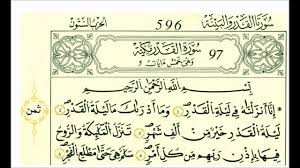 سُورَتَا القَدْرِ وَالبَيِّنَة 596 الحِزْبُ السِّتُّونَ
سُورَةُ القَدْرِ مَكِّيَّة 97
وَهِيَ خَمْسُ ءَايَاتٍ
بِسْمِ اللَّهِ الرَّحْمَٰنِ الرَّحِيمِ
إِنَّا أَنزَلْنَٰهُ فِي لَيْلَةِ الْقَدْرِ وَمَا أَدْرَىٰكَ مَا لَيْلَةُ الْقَدْرِ ثمن
لَيْلَةُ الْقَدْرِ خَيْرٌ مِّنْ أَلْفِ شَهْرٍ تَنَزَّلُ الْمَلَٰئِكَةُ وَالرُّوحُ
فِيهَا بِإِذْنِ رَبِّهِم مِّن كُلِّ أَمْرٍ سَلَٰمٌ هِيَ حَتَّىٰ مَطْلَعِ الْفَجْرِ